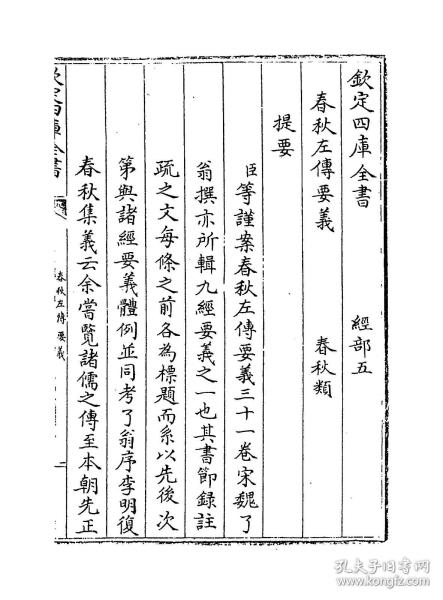 欽定四庫全書 經部五
春秋左傳要義 春秋類
提要
臣等謹案春秋左傳要義三十一卷宋魏了
翁撰亦所輯九經要義之一也其書節錄註
疏之文每條之前各為標題而系以先後次
第與諸經要義體例並同考了翁序李明復
春秋集義云余嘗覽諸儒之傳至本朝先正
欽定四庫全書
春秋左傳要義
二
孔夫子旧书网
book.kongfz.com